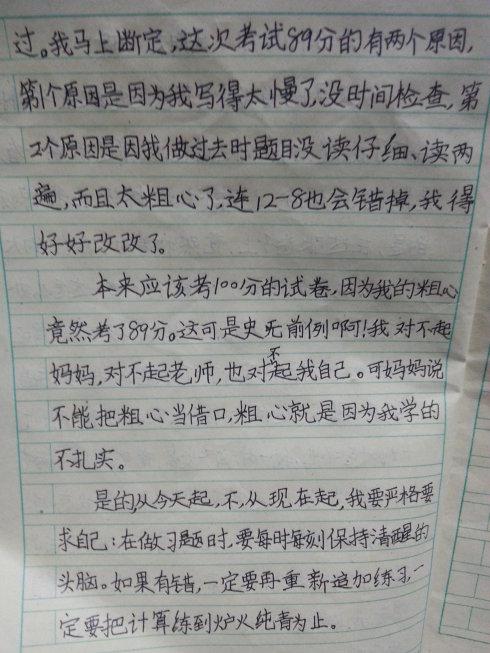 过。我马上断定,这次考试89分的有两个原因,
第1个原因是因为我写得太慢了,没时间检查,第
2个原因是因我做过去时题目没读仔细、读两
遍,而且太粗心了,连12-8也会错掉,我得
好好改改了。
本来应该考100分的试卷,因为我的粗心
竟然考了89分。这可是史无前例啊!我对不起
妈妈,对不起老师,也对不起我自己。可妈妈说
不能把粗心当借口,粗心就是因为我学的
不扎实。
是的,从今天起,不,从现在起,我要严格要
求自己:在做习题时,要每时每刻保持清醒的
头脑。如果有错,一定要再重新追加练习,一
定要把计算练到炉火纯青为止。